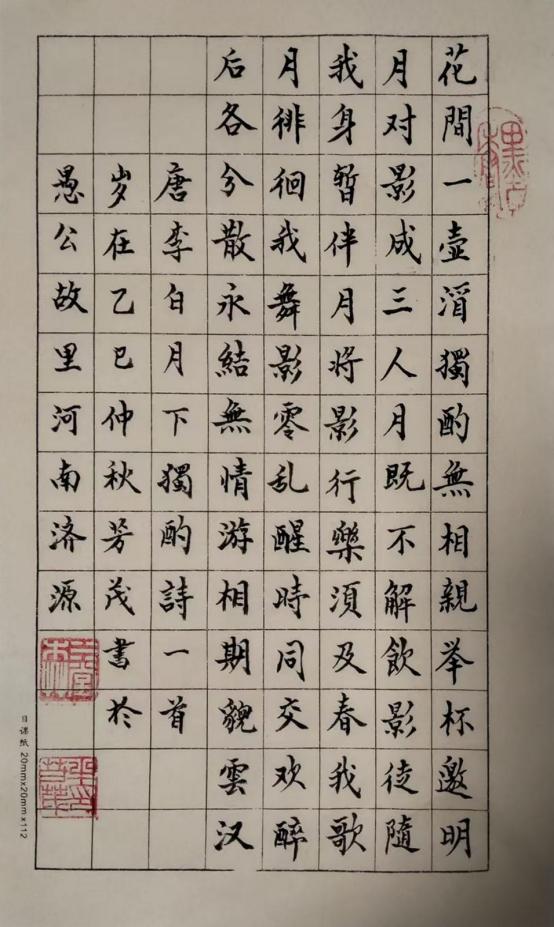 花間一壺湑獨酌無相親举杯邀明
月对影成三人月既不解飲影徒隨
我身暫伴月将影行樂須及春我歌
月徘徊我舞影零乱醒時同交欢醉
后各分散永結無情游相期貌雲汉
唐李白月下獨酌詩一首
岁在乙巳仲秋芳茂書於
愚公故里河南济源
日课纸 20mmx20mm x112